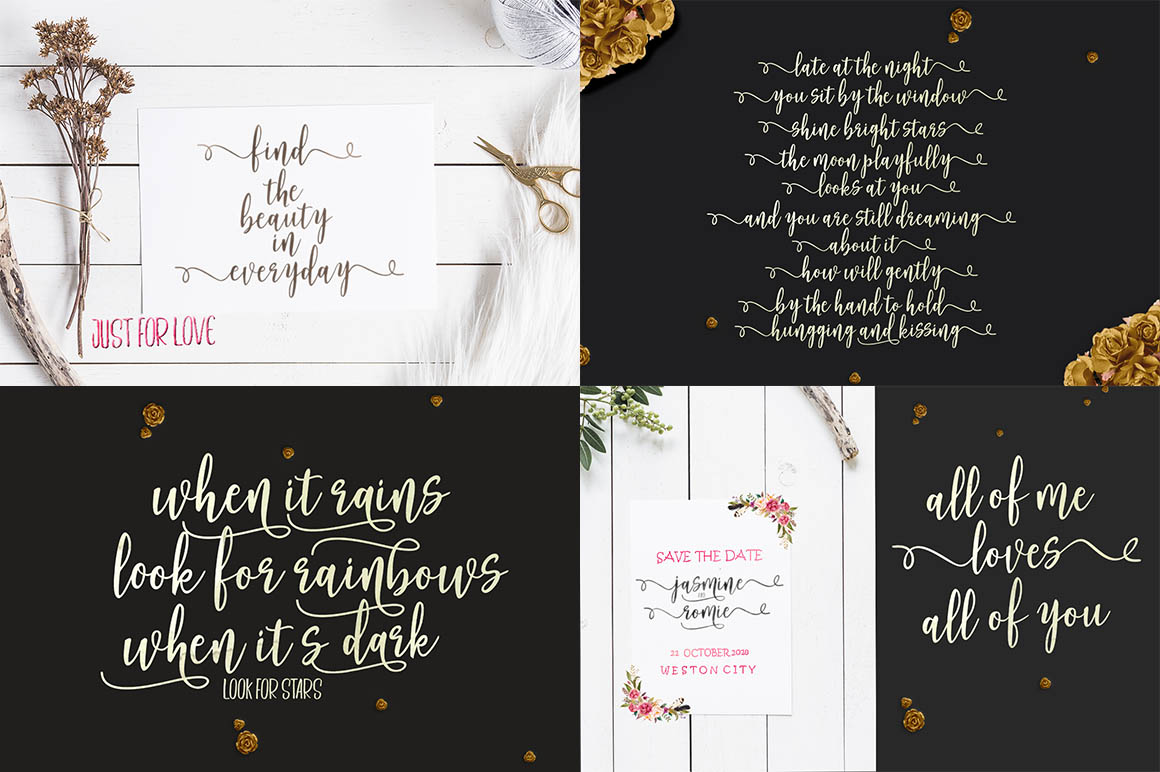 find
the
beauty
in
everyday
JUST FOR LOVE
late at the night
you sit by the window
shine bright stars
the moon playfully
looks at you
and you are still dreaming
about it
how will gently
by the hand to hold
hungging and kissing
when it rains
look for rainbows
when it's dark
LOOK FOR STARS
SAVE THE DATE
jasmine
romie
21 OCTOBER, 2018
WESTON CITY
all of me
loves
all of you